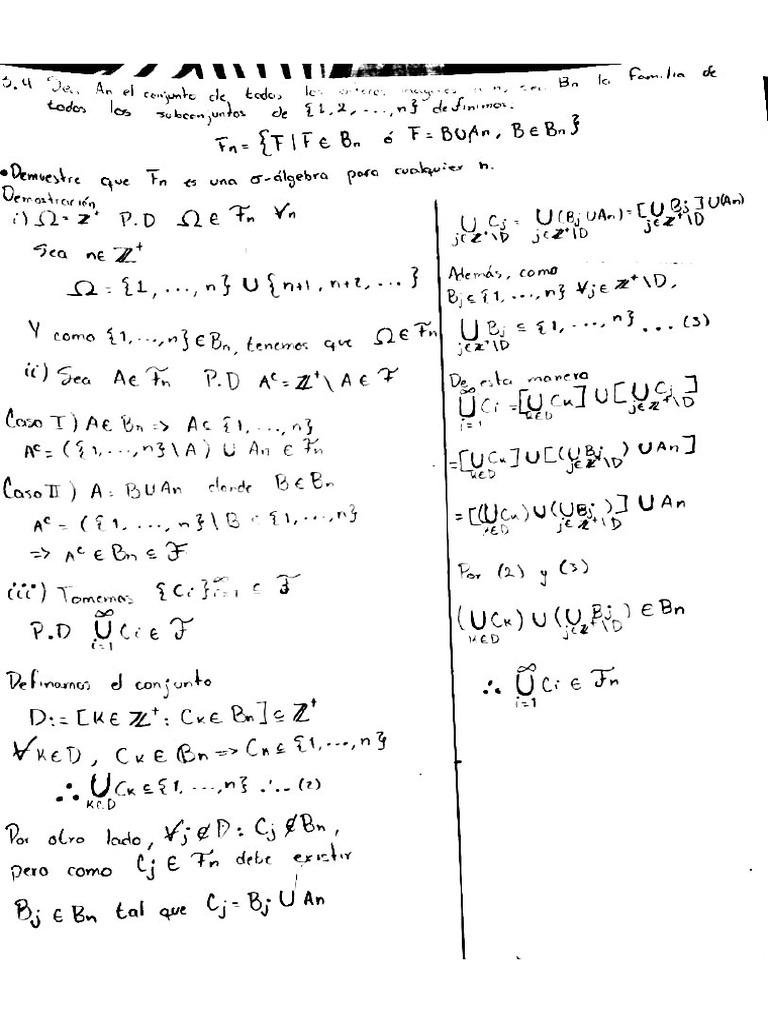 3.4 Sea An el conjunto de todos los enteros mayores a n, sea Bn la familia de
todos los subconjuntos de {1,2,...,n} definimos.
Fn = {F | F ∈ Bn ó F = B∪An, B∈Bn}
• Demuestre que Fn es una σ-álgebra para cualquier n.
Demostración
i) Ω = ℤ⁺ P.D Ω ∈ Fn ∀n
Sea n∈ℤ⁺
Ω = {1, ..., n} ∪ {n+1, n+2, ...}
Y como {1,...,n} ∈ Bn, tenemos que Ω∈Fn
ii) Sea A∈Fn P.D Aᶜ = ℤ⁺\A ∈ F
Caso I) A∈Bn => A⊂{1,...,n}
Aᶜ = ({1,...,n}\A) ∪ An ∈ Fn
Caso II) A = B∪An donde B∈Bn
Aᶜ = ({1,...,n}\B ⊂ {1,...,n}
=> Aᶜ ∈ Bn ⊆ F
iii) Tomemos {Ci}_{i=1}^∞ ⊂ F
P.D ⋃_{i=1}^∞ Ci ∈ F
Definamos el conjunto
D := [K∈ℤ⁺ : CK∈Bn] ⊆ ℤ⁺
∀K∈D, CK∈Bn => CK⊆{1,...,n}
∴ ⋃_{K∈D} CK ⊆ {1,...,n} ... (2)
Por otro lado, ∀j∉D : Cj∉Bn,
pero como Cj ∈ Fn debe existir
Bj ∈ Bn tal que Cj = Bj ∪ An
⋃_{j∈ℤ⁺\D} Cj = ⋃_{j∈ℤ⁺\D} (Bj∪An) = [⋃_{j∈ℤ⁺\D} Bj] ∪ (An)
Además, como
Bj ⊆ {1,...,n} ∀j∈ℤ⁺\D,
⋃_{j∈ℤ⁺\D} Bj ⊆ {1,...,n} ... (3)
De esta manera
⋃_{i=1}^∞ Ci = [⋃_{K∈D} CK] ∪ [⋃_{j∈ℤ⁺\D} Cj]
= [⋃_{K∈D} CK] ∪ [(⋃_{j∈ℤ⁺\D} Bj) ∪ An]
= [(⋃_{K∈D} CK) ∪ (⋃_{j∈ℤ⁺\D} Bj)] ∪ An
Por (2) y (3)
(⋃_{K∈D} CK) ∪ (⋃_{j∈ℤ⁺\D} Bj) ∈ Bn
∴ ⋃_{i=1}^∞ Ci ∈ Fn